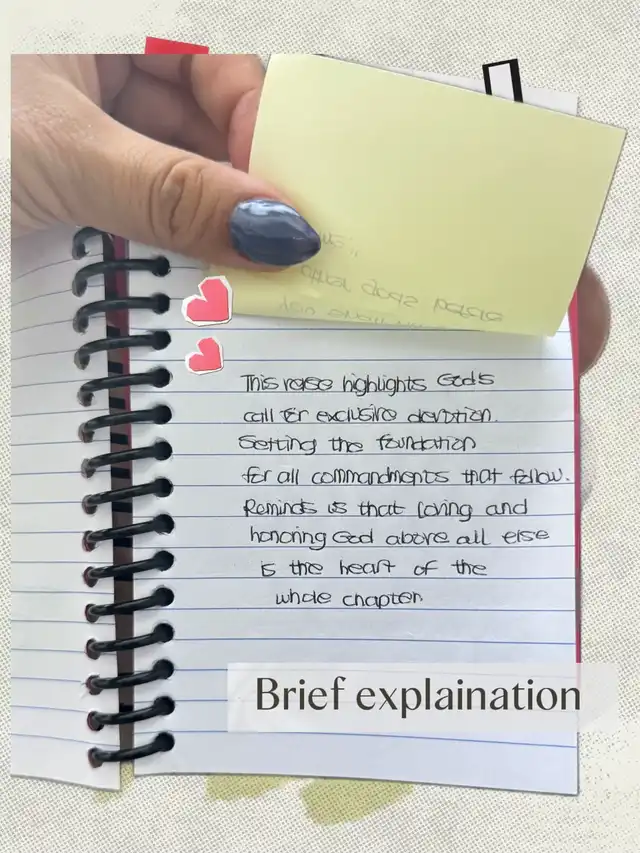 This verse highlights God's
call for exclusive devotion.
Setting the foundation
for all commandments that follow.
Reminds us that loving and
honoring God above all else
is the heart of the
whole chapter.
Brief explaination